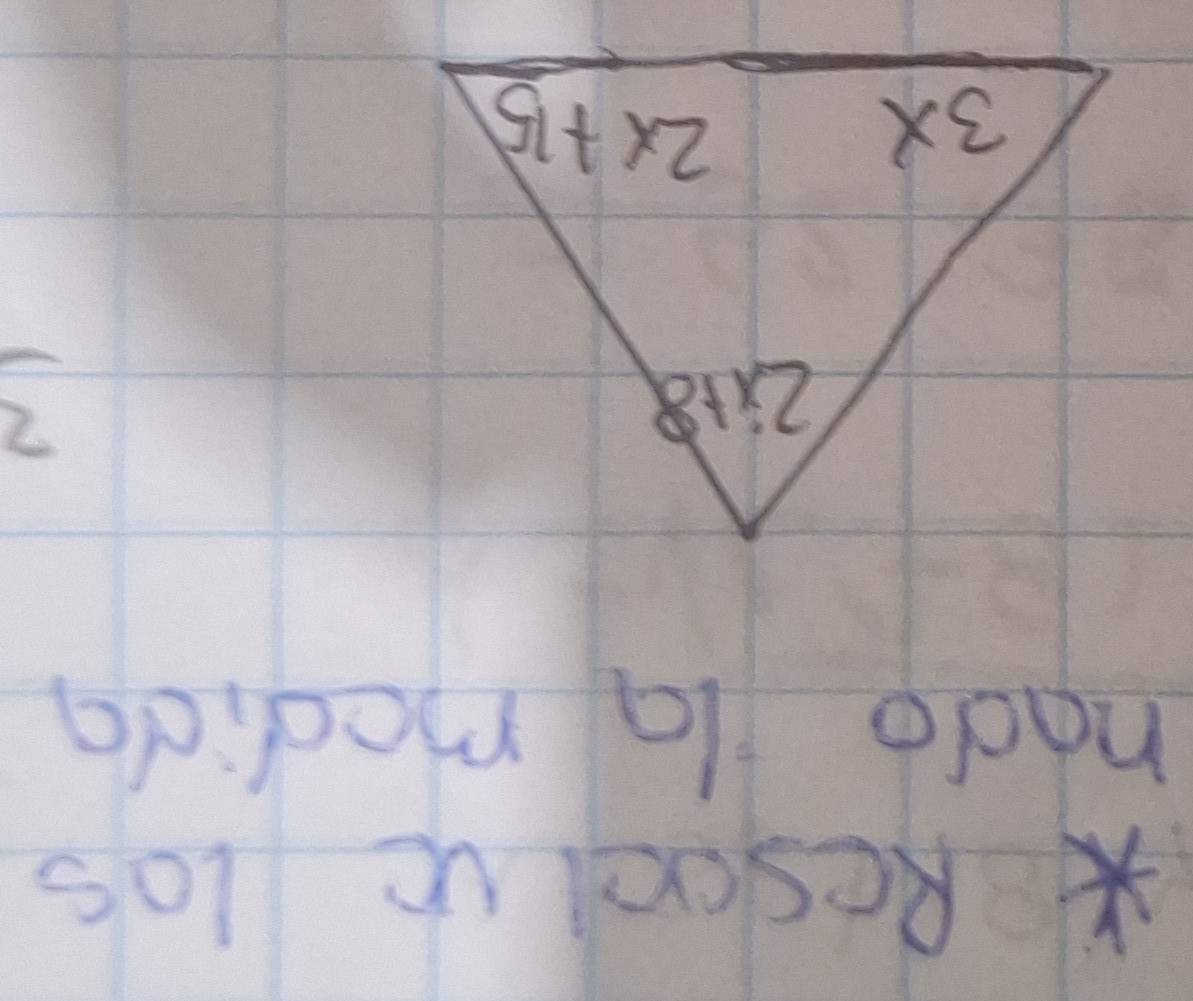 * Resuelve Los
nado la medida
2x+8
3x 2x+15